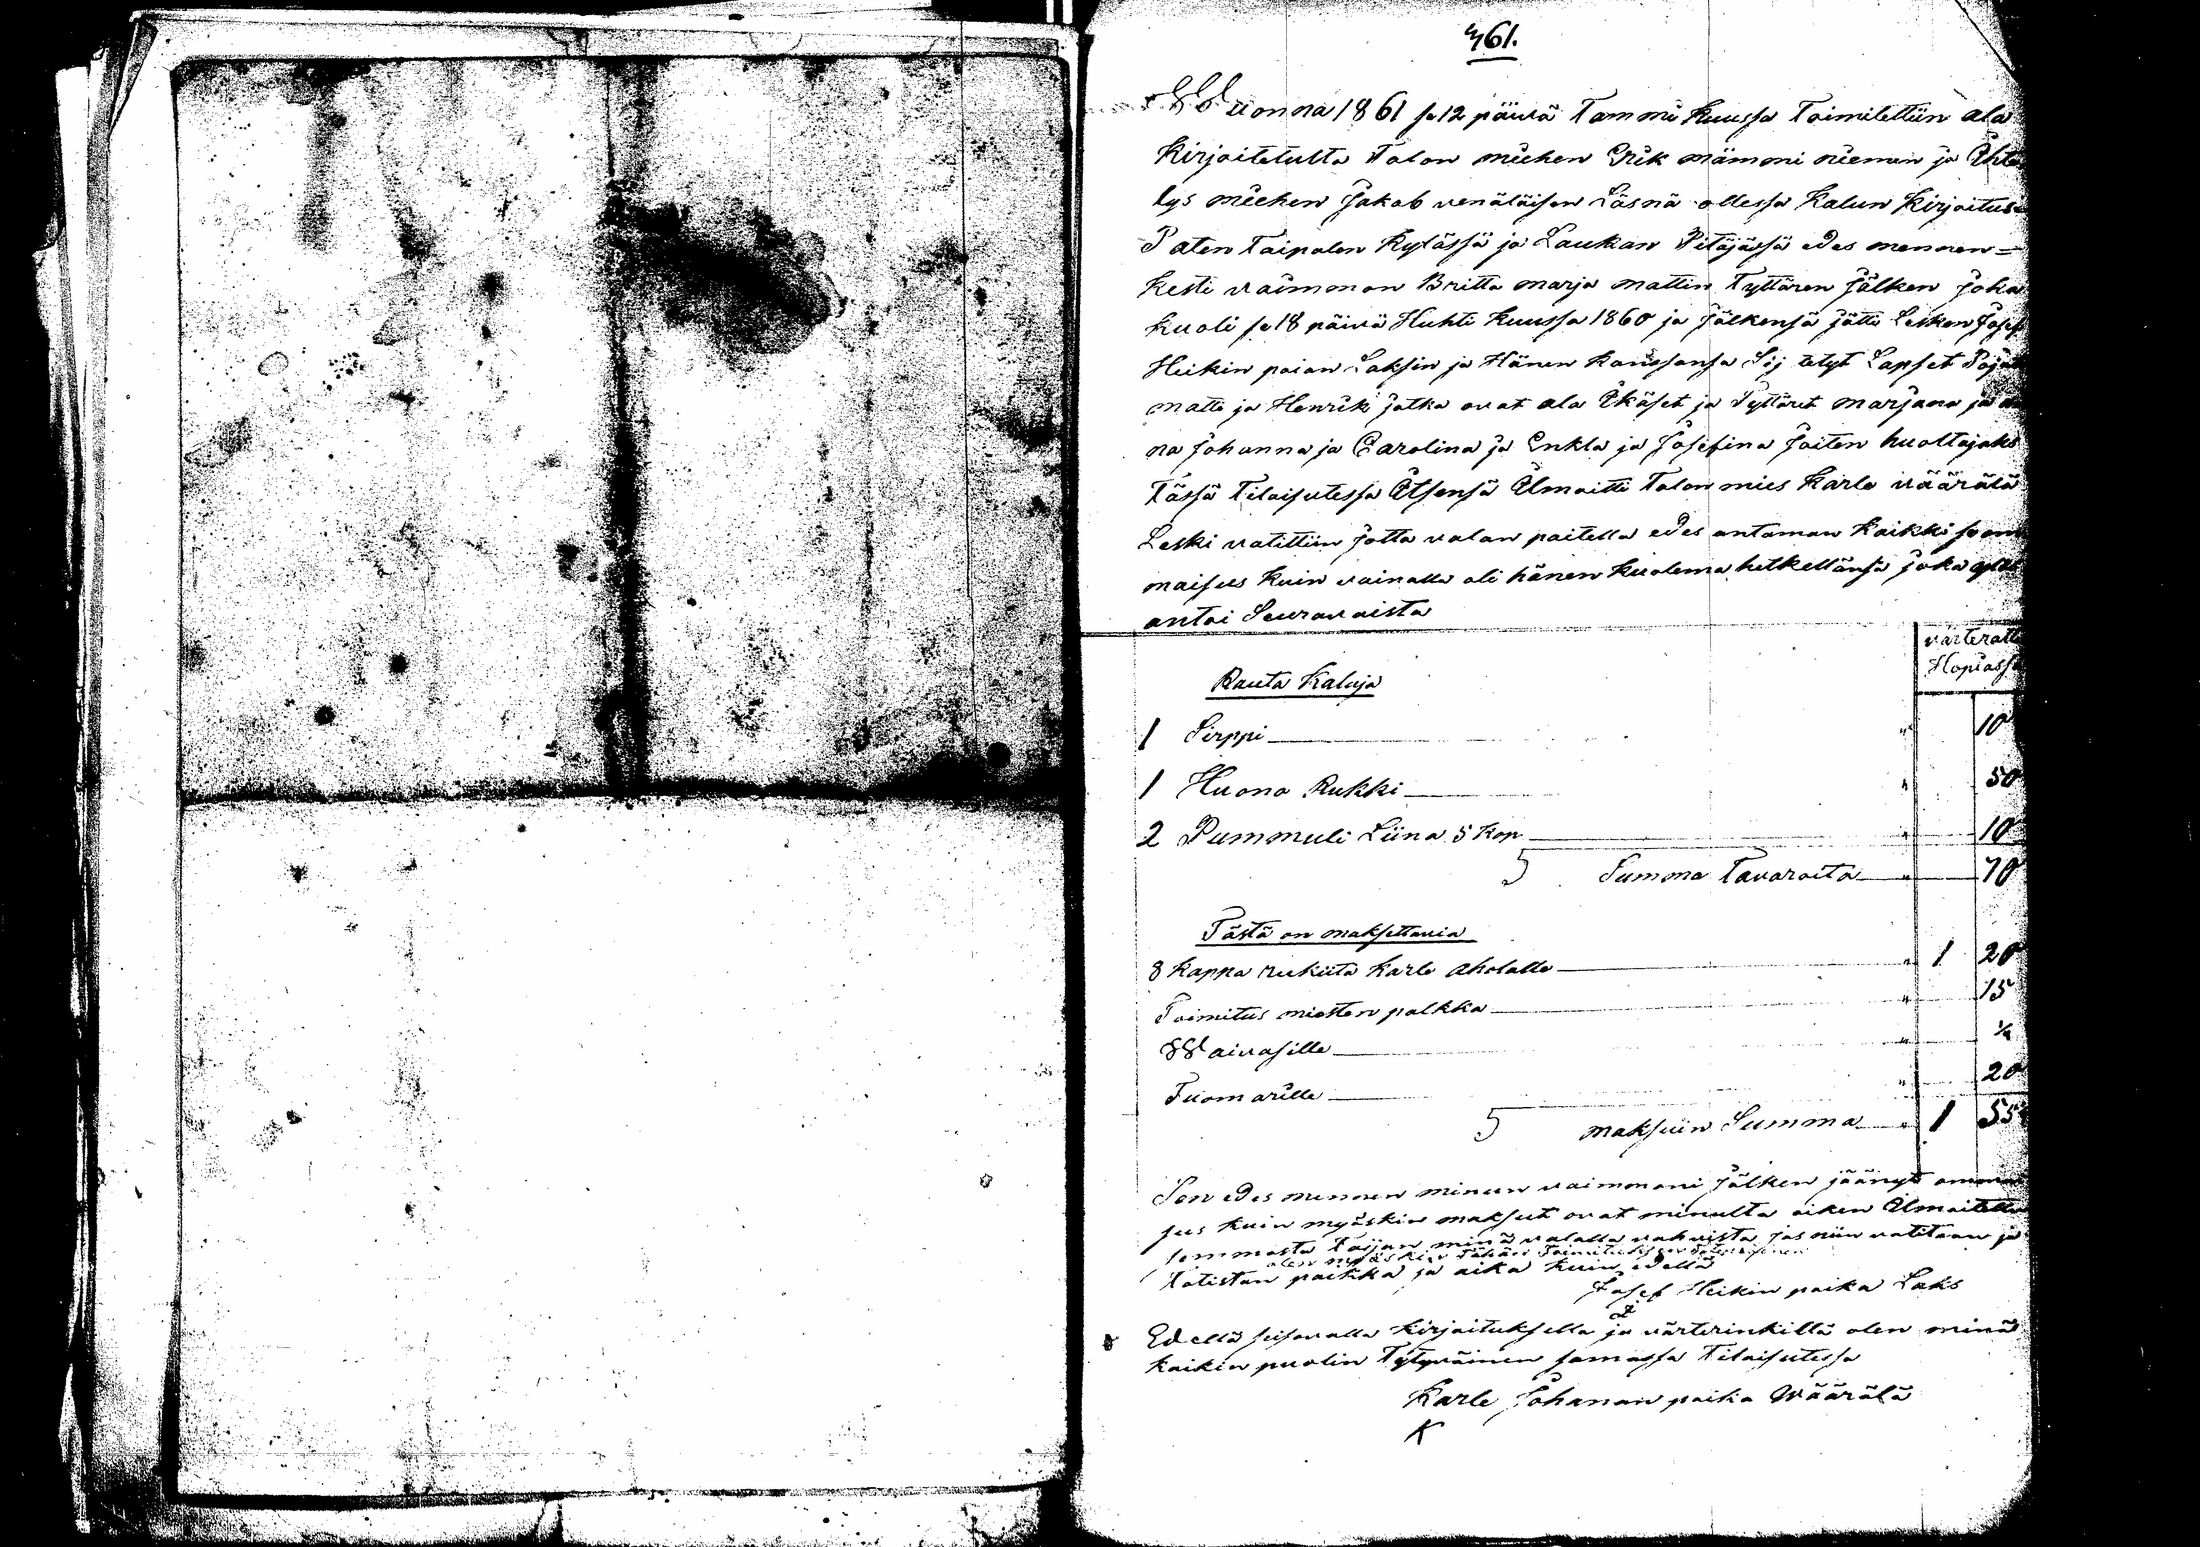 461.
Wuonna 1861 se 12 päivä Tammi Kuussa Toimitettiin ala
Kirjoitetulta Talon miehen Erik mämmi niemen ja
lys miehen Jakob venäläisen Läsnä ollessa Kalun Kirjoitus
Paten Taipalen Kylässä ja Laukan Pitäjässä edes mennen=
kesti vaimmon Britta marja mattin Tyttären Jälken Joka
kuoli se 18 päivä Huhti Kuussa 1860 ja Jälkensä jätti Lesken Josef
Heikin poian Laksin ja Hänen kanssansa Sij tetyt Lapset Pojat
matti ja Henrik jotka ovat ala Ikäset ja Tyttäret marjana ja
na Johanna ja Carolina ja Enkla ja Josefina Joiten huoltajaks
Tässä Tilaisutessa Itsensä Ilmoitti Talon mies Karle väärälä
Leski vatittiin Jotta valan paitella edes antaman Kaikki se om
maisus kuin vainalla oli hänen kuolema hetkellänsä joka
antoi Seuravaista
värterattu
Hopiassa
Rauta Kaluja
1 Sirppi " 10
1 Huono Rukki " 50
2 Pummuli Liina 5 kop " 10
Summa Tavaroita " 70
Tästä on maksettavia
8 kappa rukiita Karle Aholalle " 1 20
Toimitus miesten palkka " 15
Waivasille " ¼
Tuomarille " 20
maksuin Summa " 1 55¼
Sen edes mennen minun vaimmoni Jälken jäänyt
sus kuin myöskin maksut ovat minulta oiken Ilmoitettu
semmosta Taijan minä valalla vahvista jos niin vatitaan ja
olen myöskin Tähän Toimitukseen
Totistan paikka ja aika kuin edellä
Josef Heikin poika Laks
Edellä seisovalla kirjoituksella ja värterinkillä olen minä
kaikin puolin Tytyväinen samassa Tilaisutessa
Karle Johanan poika Wäärälä